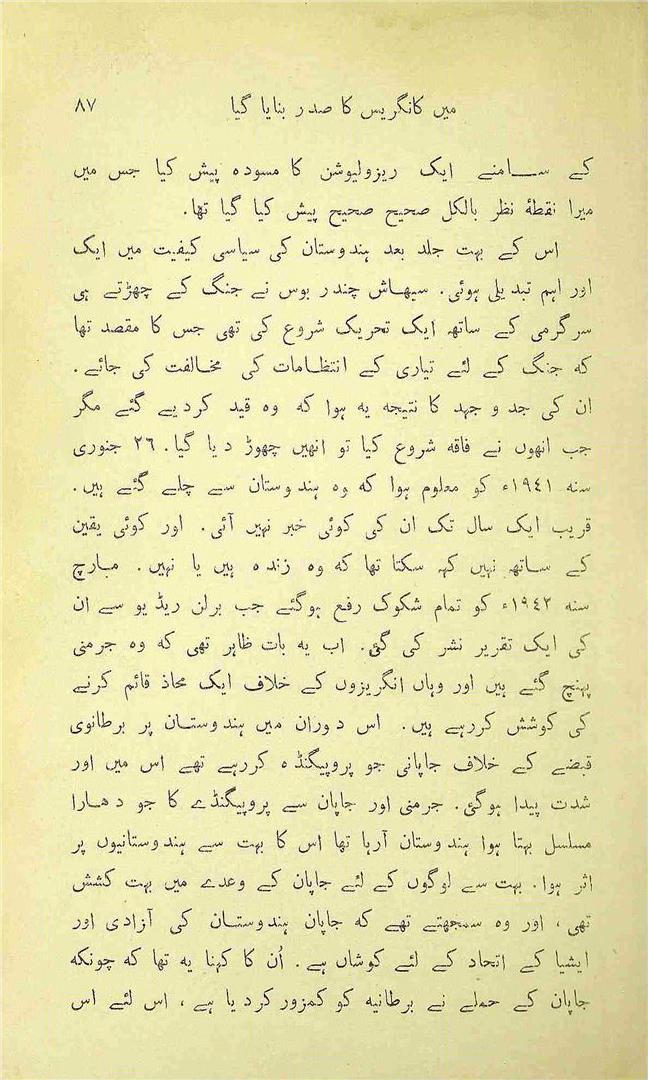 میں کانگریس کا صدر بنایا گیا ۸۷
کے سامنے ایک ریزولیوشن کا مسودہ پیش کیا جس میں
میرا نقطۂ نظر بالکل صحیح صحیح پیش کیا گیا تھا۔
اس کے بہت جلد بعد ہندوستان کی سیاسی کیفیت میں ایک
اور اہم تبدیلی ہوئی۔ سبھاش چندر بوس نے جنگ کے چھڑتے ہی
سرگرمی کے ساتھ ایک تحریک شروع کی تھی جس کا مقصد تھا
کہ جنگ کے لئے تیاری کے انتظامات کی مخالفت کی جائے۔
ان کی جد و جہد کا نتیجہ یہ ہوا کہ وہ قید کردیے گئے مگر
جب انھوں نے فاقہ شروع کیا تو انھیں چھوڑ دیا گیا۔ ۲٦ جنوری
سنہ ۱۹٤۱ء کو معلوم ہوا کہ وہ ہندوستان سے چلے گئے ہیں۔
قریب ایک سال تک ان کی کوئی خبر نہیں آئی۔ اور کوئی یقین
کے ساتھ نہیں کہہ سکتا تھا کہ وہ زندہ ہیں یا نہیں۔ مارچ
سنہ ۱۹٤۲ء کو تمام شکوک رفع ہوگئے جب برلن ریڈیو سے ان
کی ایک تقریر نشر کی گئی۔ اب یہ بات ظاہر تھی کہ وہ جرمنی
پہنچ گئے ہیں اور وہاں انگریزوں کے خلاف ایک محاذ قائم کرنے
کی کوشش کررہے ہیں۔ اس دوران میں ہندوستان پر برطانوی
قبضے کے خلاف جاپانی جو پروپیگنڈہ کررہے تھے اس میں اور
شدت پیدا ہوگئی۔ جرمنی اور جاپان سے پروپیگنڈے کا جو دھارا
مسلسل بہتا ہوا ہندوستان آرہا تھا اس کا بہت سے ہندوستانیوں پر
اثر ہوا۔ بہت سے لوگوں کے لئے جاپان کے وعدے میں بہت کشش
تھی، اور وہ سمجھتے تھے کہ جاپان ہندوستان کی آزادی اور
ایشیا کے اتحاد کے لئے کوشاں ہے۔ اُن کا کہنا یہ تھا کہ چونکہ
جاپان کے حملے نے برطانیہ کو کمزور کردیا ہے، اس لئے اس